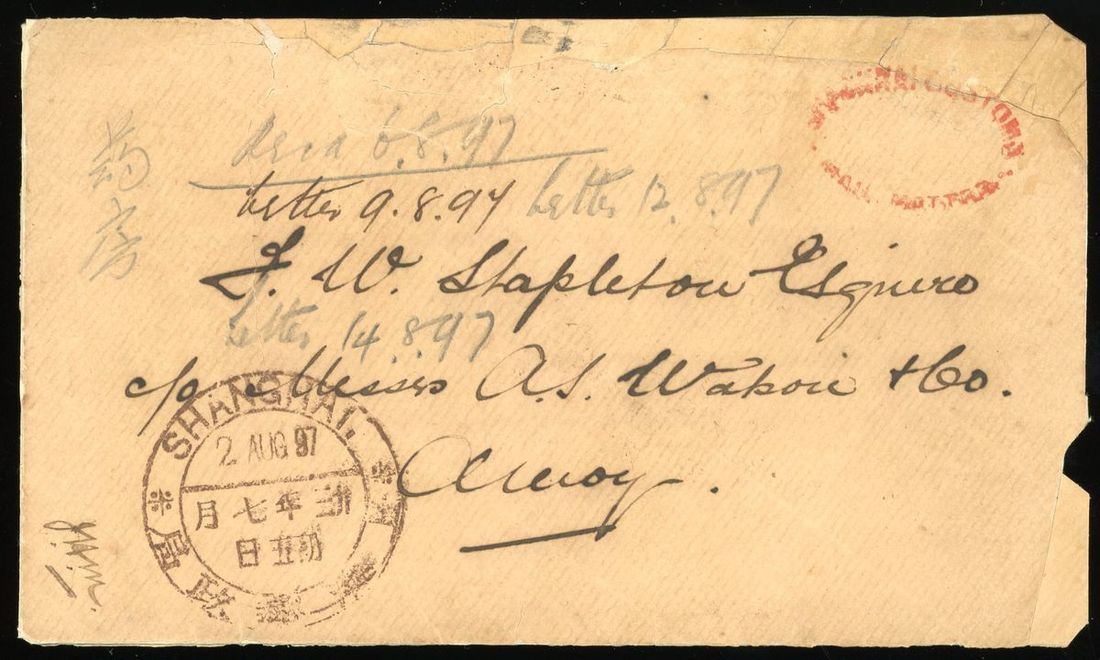 药房
Recd 6.8.97
letter 9.8.97 letter 12.8.97
F. W. Stapleton Esquire
letter 14.8.97
c/o Messrs A.S. Watson & Co.
Amoy.
SHANGHAI.
2 AUG 97
年七月
初五日
政局
CUSTOMS
MAIL MATTER